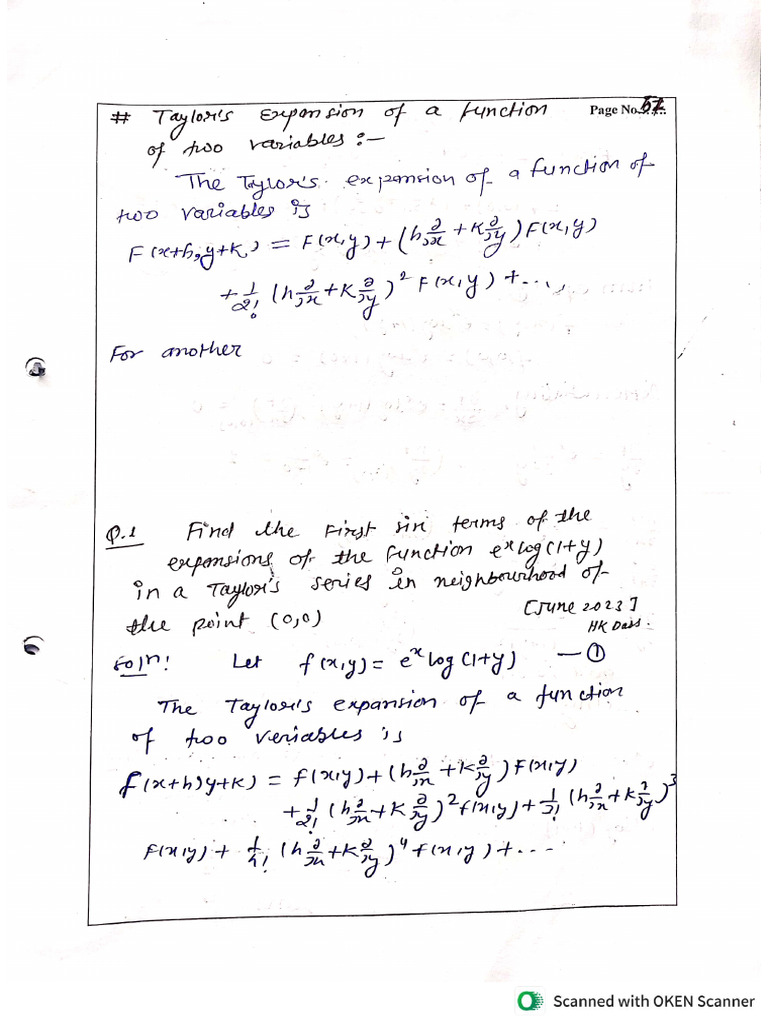 Page No. 57
# Taylor's expansion of a function
of two variables :-
The Taylor's expansion of a function of
two variables is
F(x+h, y+k) = F(x,y) + (h ∂/∂x + k ∂/∂y) F(x,y)
+ 1/2! (h ∂/∂x + k ∂/∂y)² F(x,y) + ....
For another
Q.1 Find the first sin terms of the
expansions of the function eˣ log(1+y)
in a Taylor's series in neighbourhood of
the point (0,0) [June 2023]
HK Dass.
Soln! Let f(x,y) = eˣ log(1+y) — ①
The Taylor's expansion of a function
of two veriables is
f(x+h)y+k) = f(x,y) + (h ∂/∂x + k ∂/∂y) F(x,y)
+ 1/2! (h ∂/∂x + k ∂/∂y)² f(x,y) + 1/3! (h ∂/∂x + k ∂/∂y)³
F(x,y) + 1/4! (h ∂/∂x + k ∂/∂y)⁴ f(x,y) + ....
Scanned with OKEN Scanner